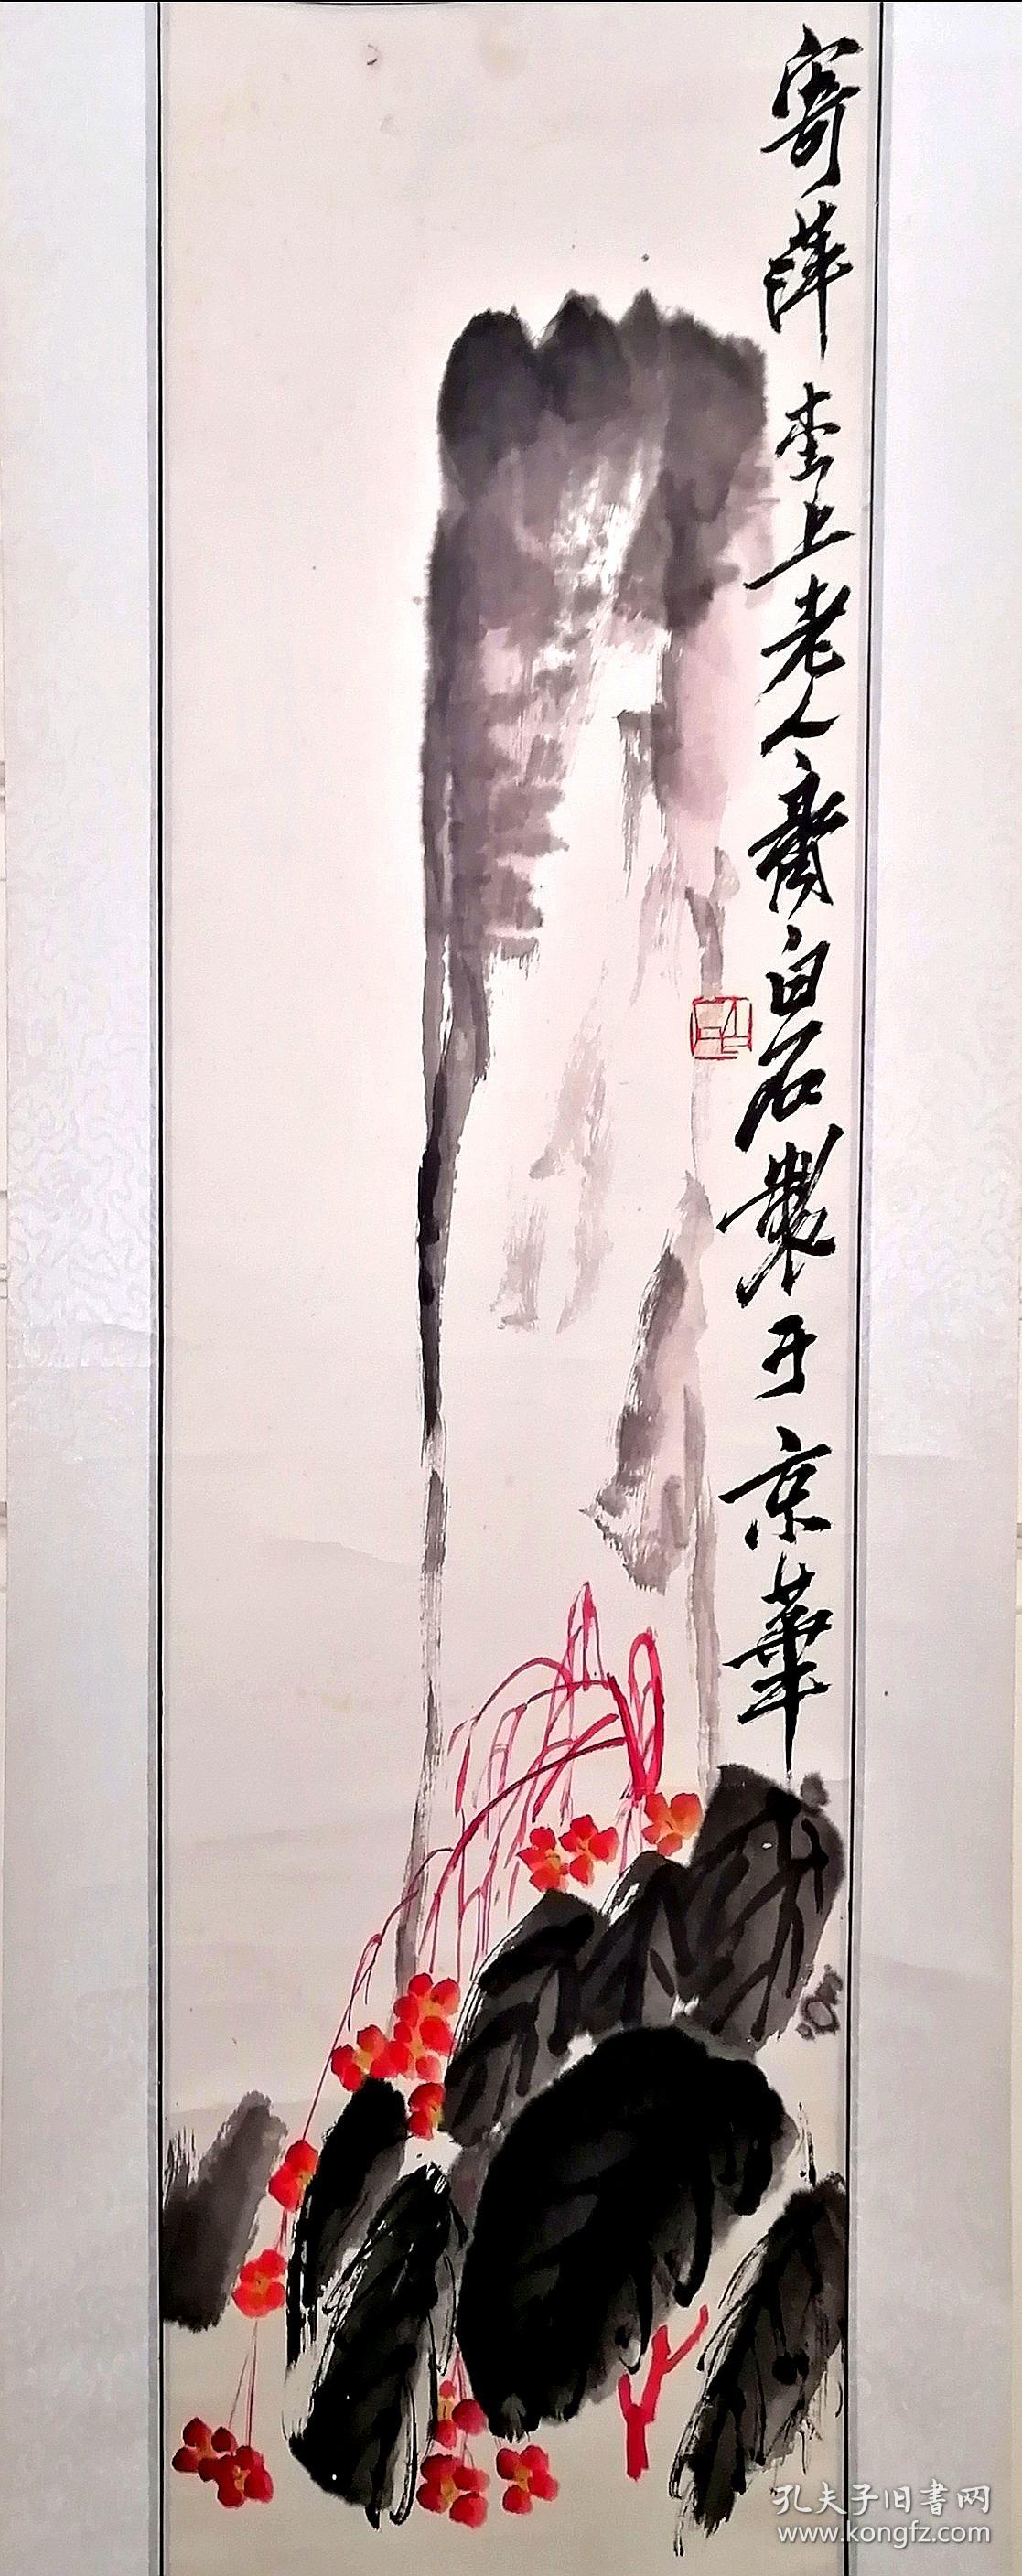 寄萍堂上老人齊白石製于京華
孔夫子旧書网
www.kongfz.com